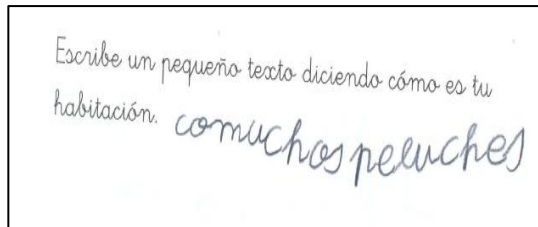 Escribe un pequeño texto diciendo cómo es tu
habitación. comuchos peluches